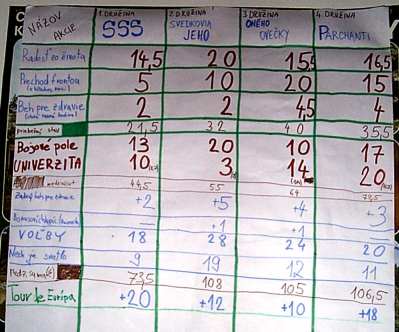 NÁZOV AKCIE 1. DRUŽINA SSS 2. DRUŽINA SVEDKOVIA JEHO 3. DRUŽINA ONÉHO OVEČKY 4. DRUŽINA PARCHANTI
Radosť zo života 14,5 20 15,5 16,5
Prechod frontou 5 10 20 15
Beh pre zdravie 2 2 4,5 4
priebežný stav 21,5 32 40 35,5
Bojové pole 13 20 10 17
UNIVERZITA 10 3 14 20
44,5 55 64 73,5
+2 +5 +4 +3
- +1 +1
VOĽBY 18 28 24 20
Nech je svetlo 9 19 12 11
73,5 108 105 106,5
Tour de Európa +20 +12 +10 +18